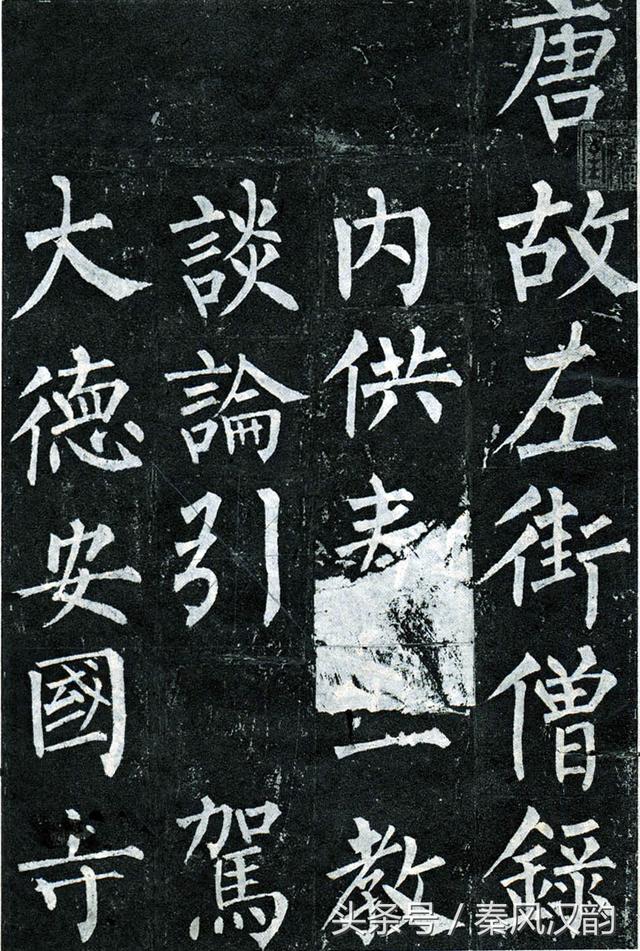 唐故左街僧録
内供教
談論引駕
大德安國寺
头条号 / 秦风汉韵